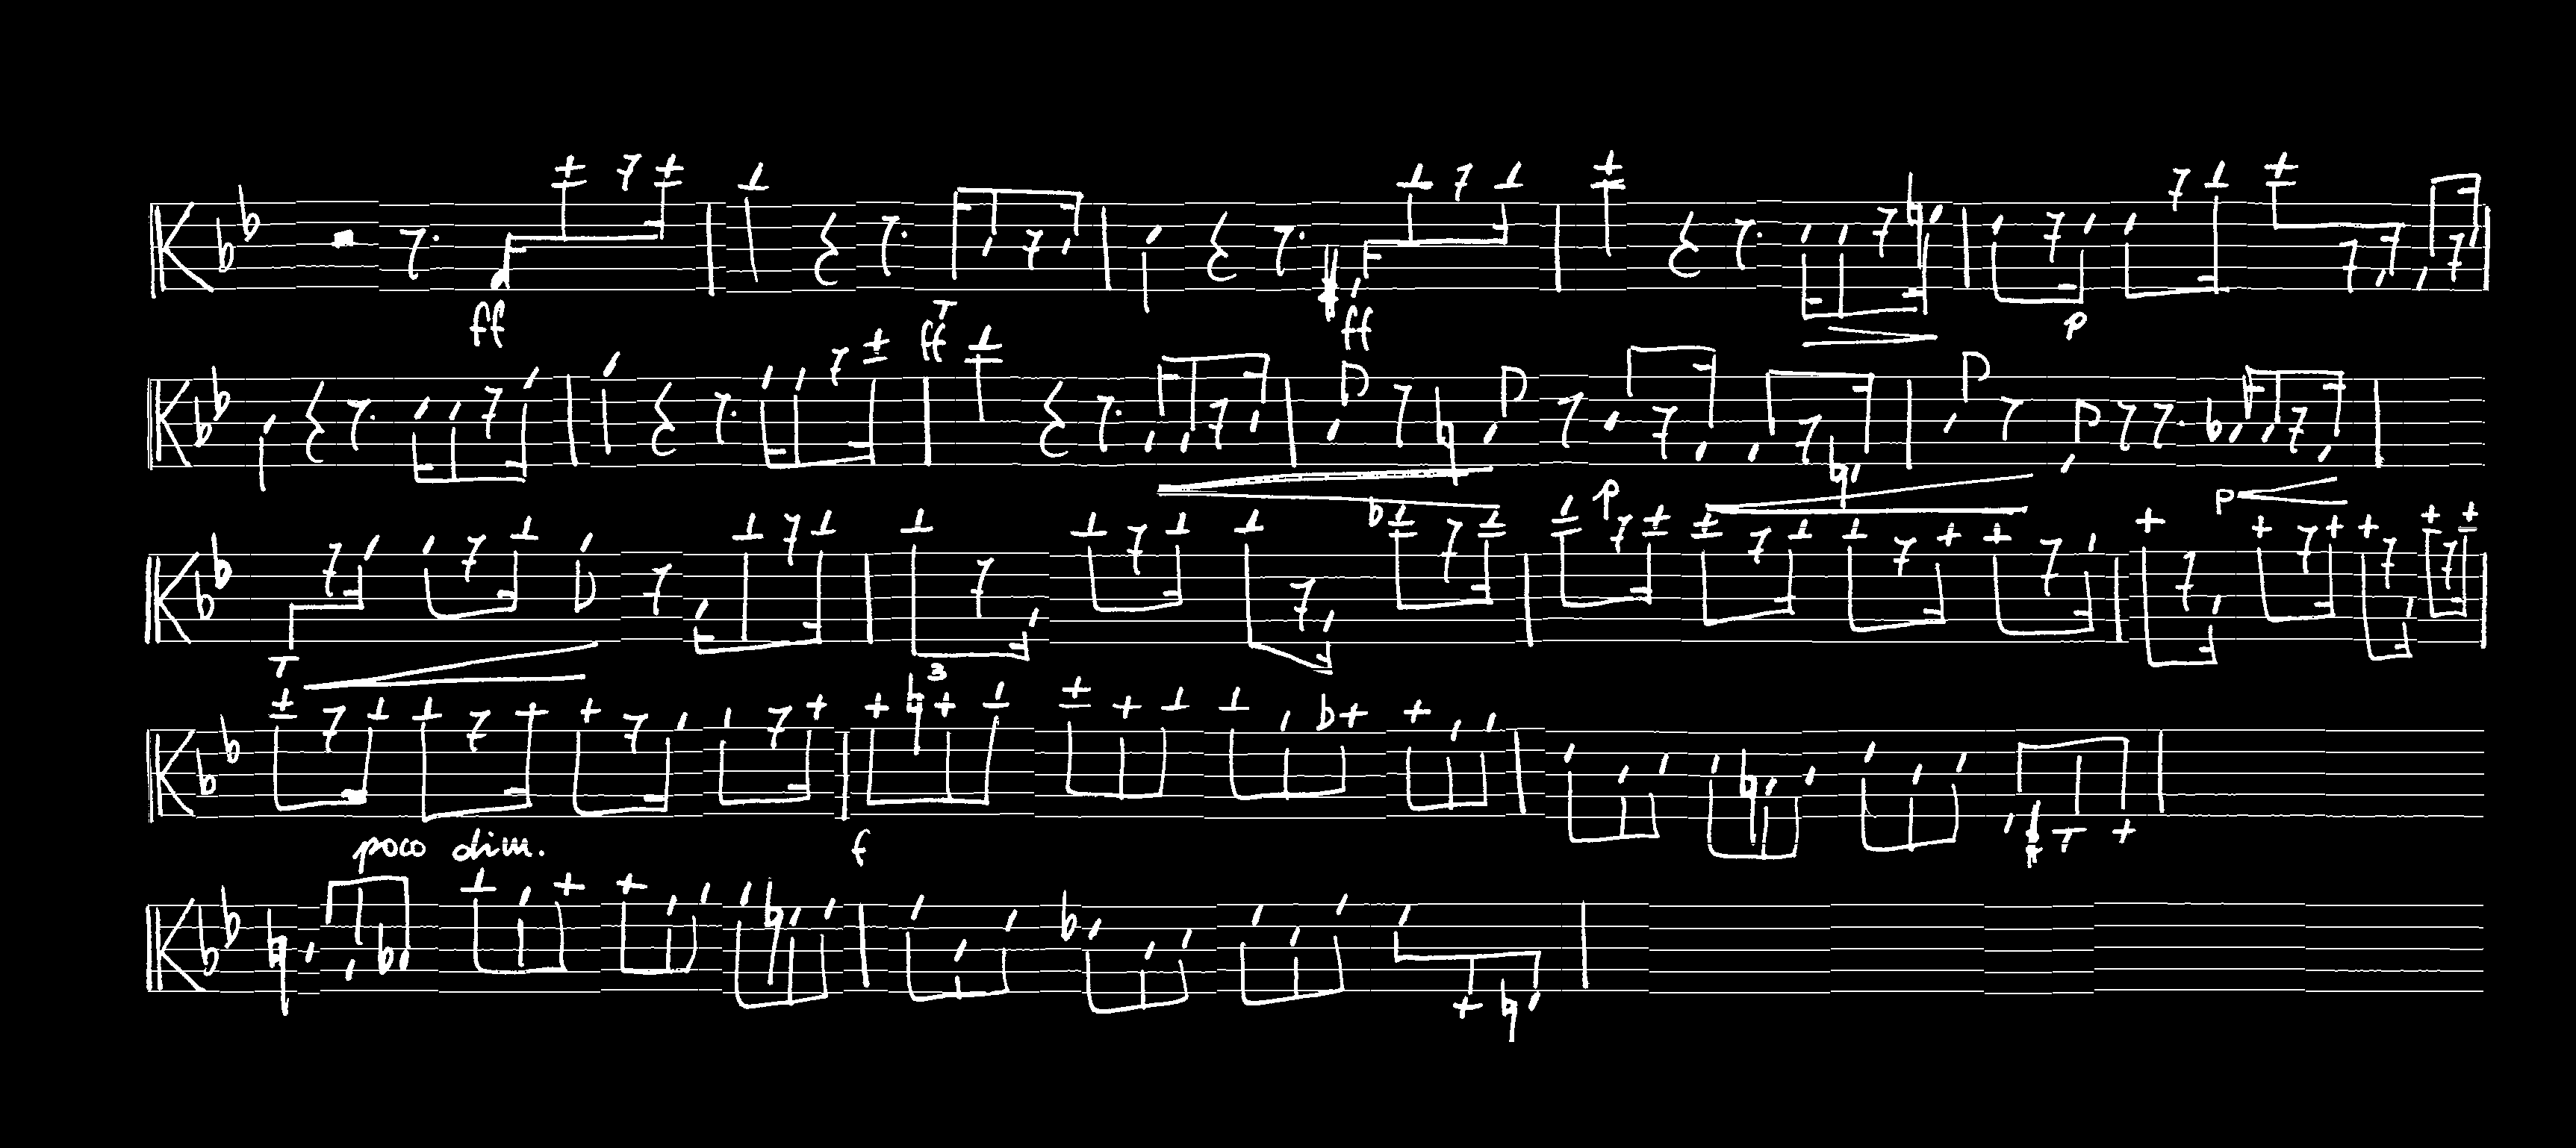 ff ff ff p
p p
3
poco dim. f